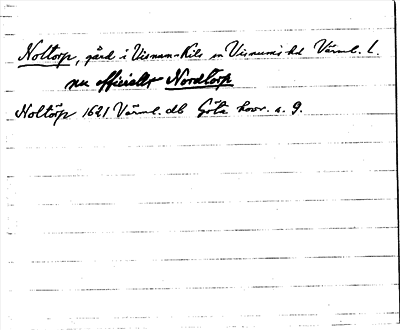 Noltorp, gård i Visnum-Kils sn Visnums hd Värml. l.
nu officiellt Nordtorp
Noltorp 1621 Värml. db Göta hovr. a. 9.